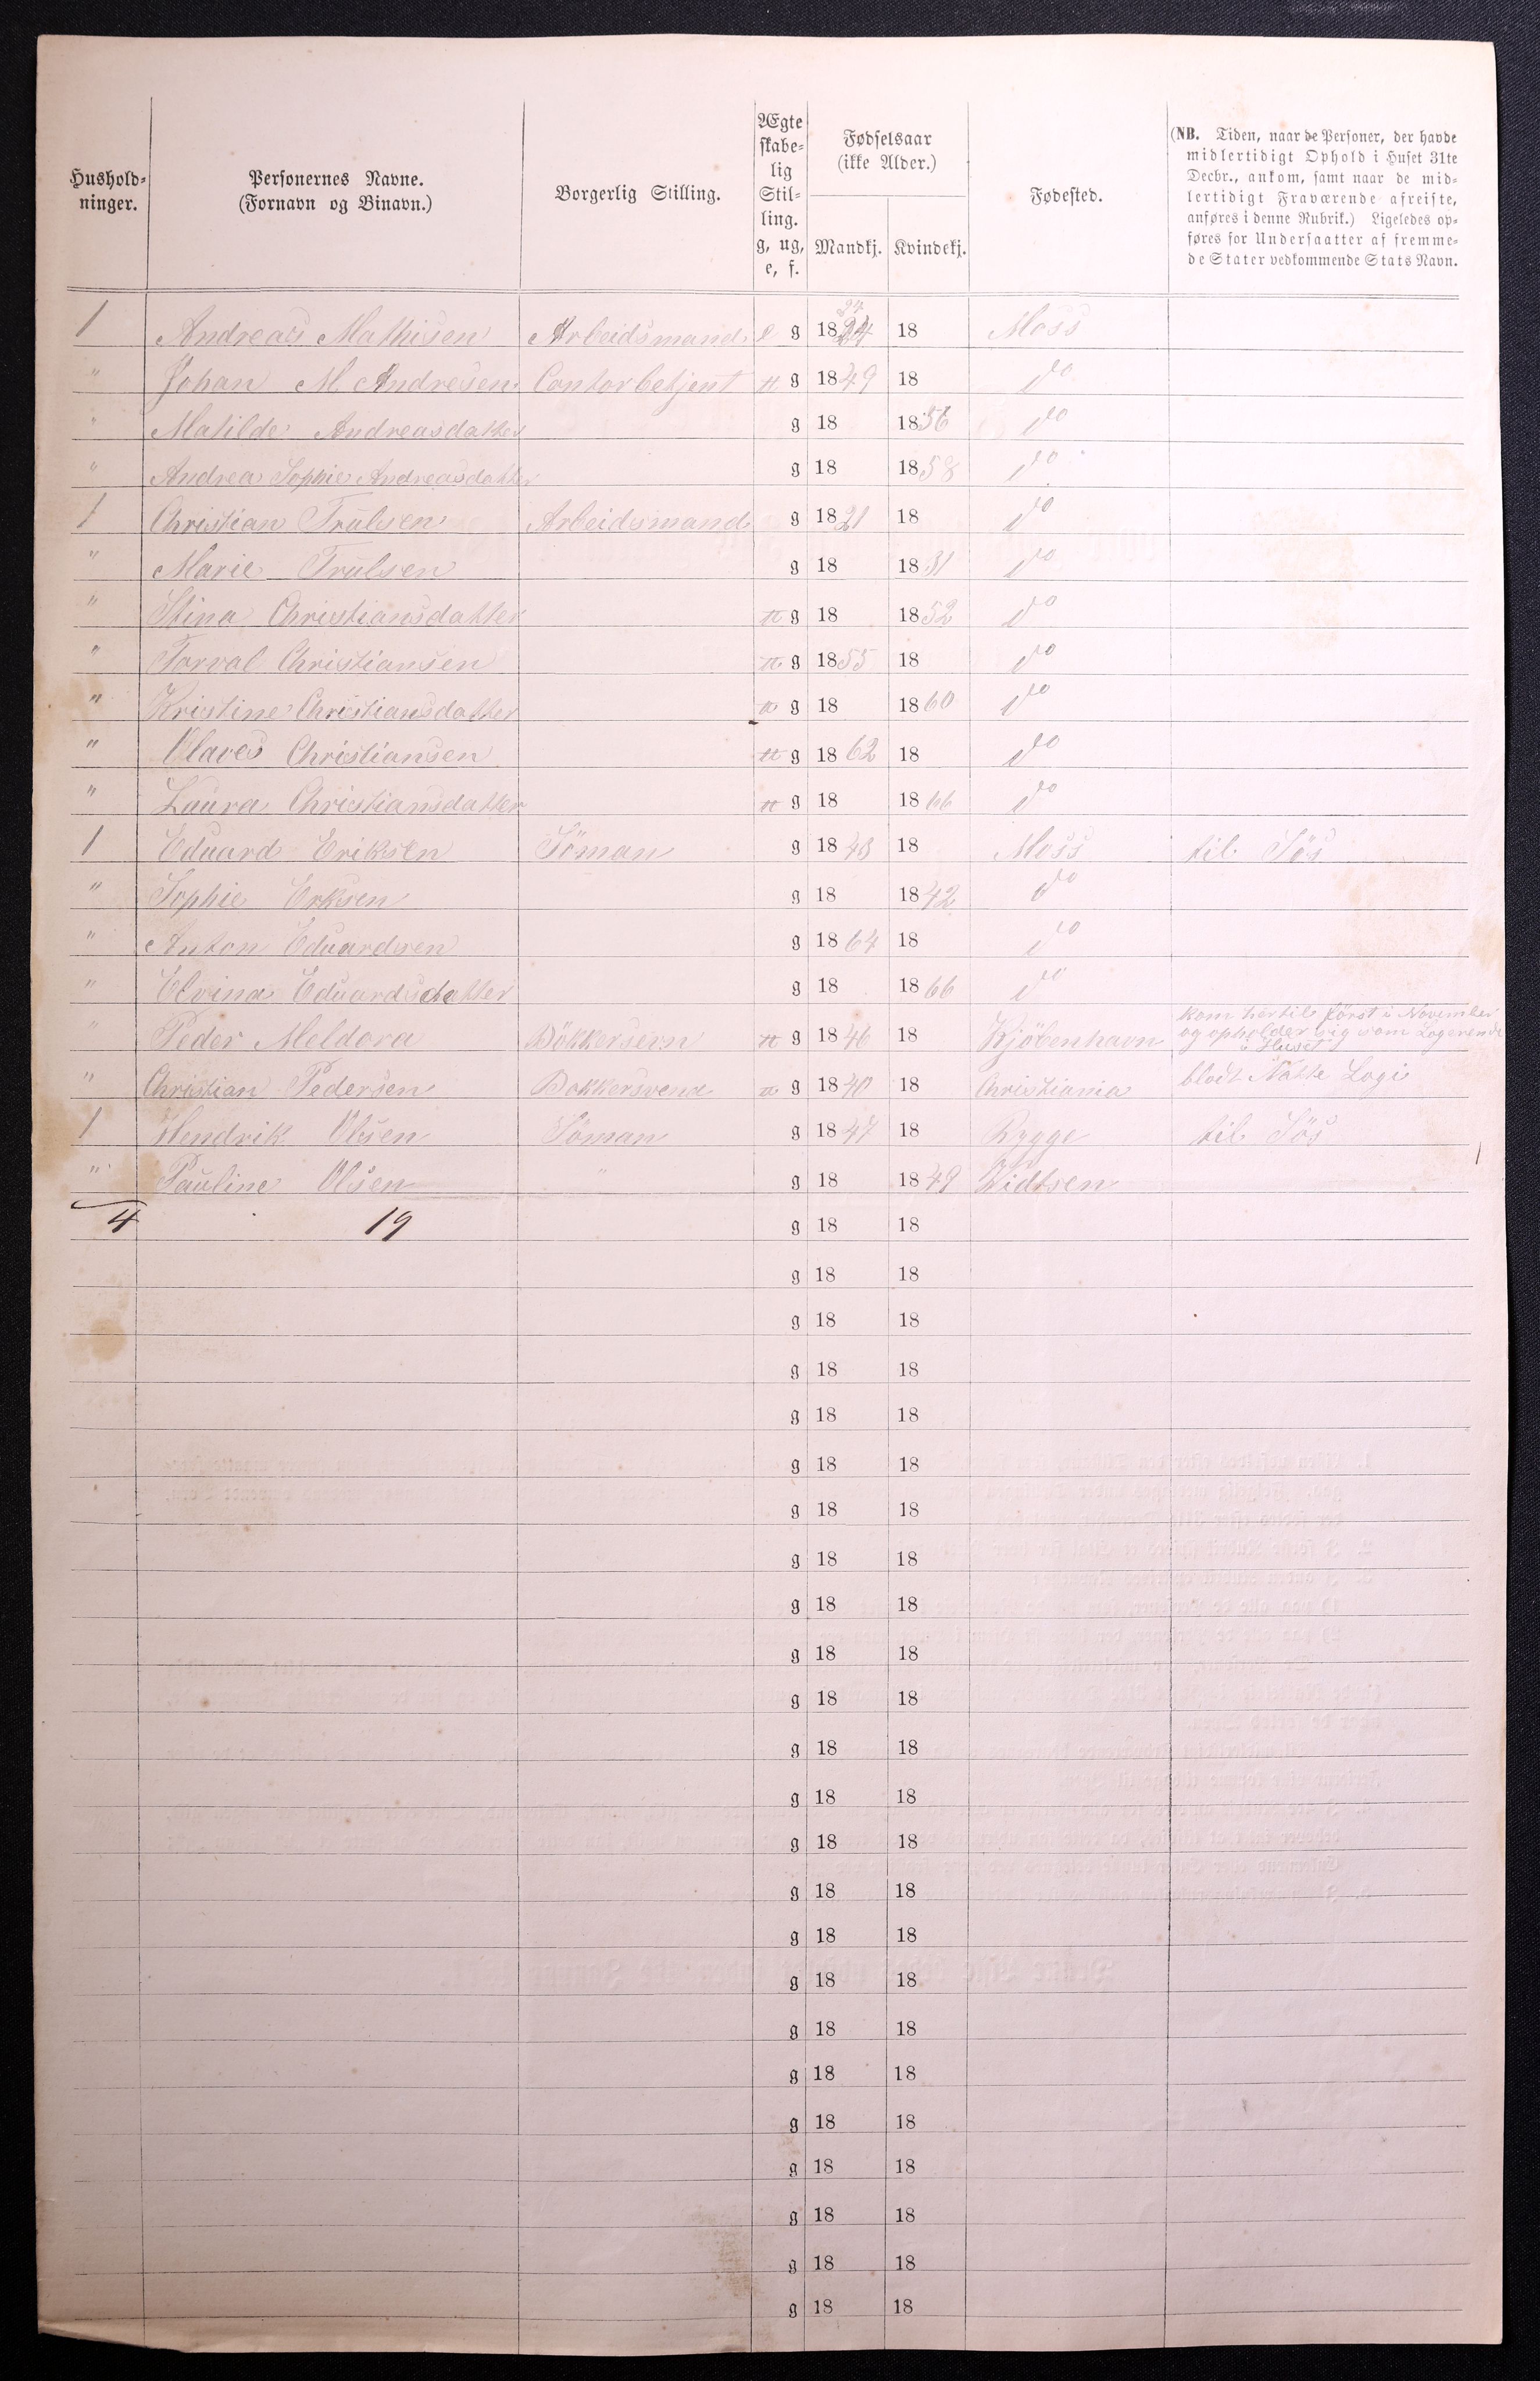 Hushold-
ninger.
Personernes Navne.
(Fornavn og Binavn.)
Borgerlig Stilling.
Ægte
skabe-
lig
Stil-
ling.
g, ug,
e, f.
Fødselsaar
(ikke Alder.)
Mandkj.
Kvindekj.
Fødested.
(NB. Tiden, naar de Personer, der havde
midlertidigt Ophold i Huset 31te
Decbr., ankom, samt naar de mid-
lertidigt Fraværende afreiste,
anføres i denne Rubrik.) Ligeledes op-
føres for Undersaatter af fremme-
de Stater vedkommende Stats Navn.
1 Andreas Mathisen Arbeidsmand e g 1824 27 18 Moss
" Johan M. Andresen Contorbetjent u g 1849 18 do
" Matilde Andreasdatter g 18 1856 do
" Andrea Sophie Andreasdatter g 18 1858 do
1 Christian Trulsen Arbeidsmand g 1821 18 do
" Marie Trulsen g 18 1831 do
" Stina Christiansdatter u g 18 1852 do
" Torval Christiansen u g 1855 18 do
" Kristine Christiansdatter u g 18 1860 do
" Olaves Christiansen u g 1862 18 do
" Laura Christiansdatter u g 18 1866 do
1 Eduard Eriksen Söman g 1843 18 Moss til Søs
" Sophie Erksen g 18 1842 do
" Anton Eduardsen g 1864 18 do
" Elvina Eduardsdatter g 18 1866 do
" Peder Meldora Bökkersvn u g 1846 18 Kjöbenhavn kom hertil först i November
og opholder sig som Logerende
i Huset
" Christian Pedersen Bokkersvend u g 1840 18 Christiania blodt Natte Logi
1 Hendrik Olsen Söman g 1847 18 Rygge til Søs
" Pauline Olsen " g 18 1849 Vidtsen
4 19 g 18 18
g 18 18
g 18 18
g 18 18
g 18 18
g 18 18
g 18 18
g 18 18
g 18 18
g 18 18
g 18 18
g 18 18
g 18 18
g 18 18
g 18 18
g 18 18
g 18 18
g 18 18
g 18 18
g 18 18
g 18 18
g 18 18
g 18 18
g 18 18